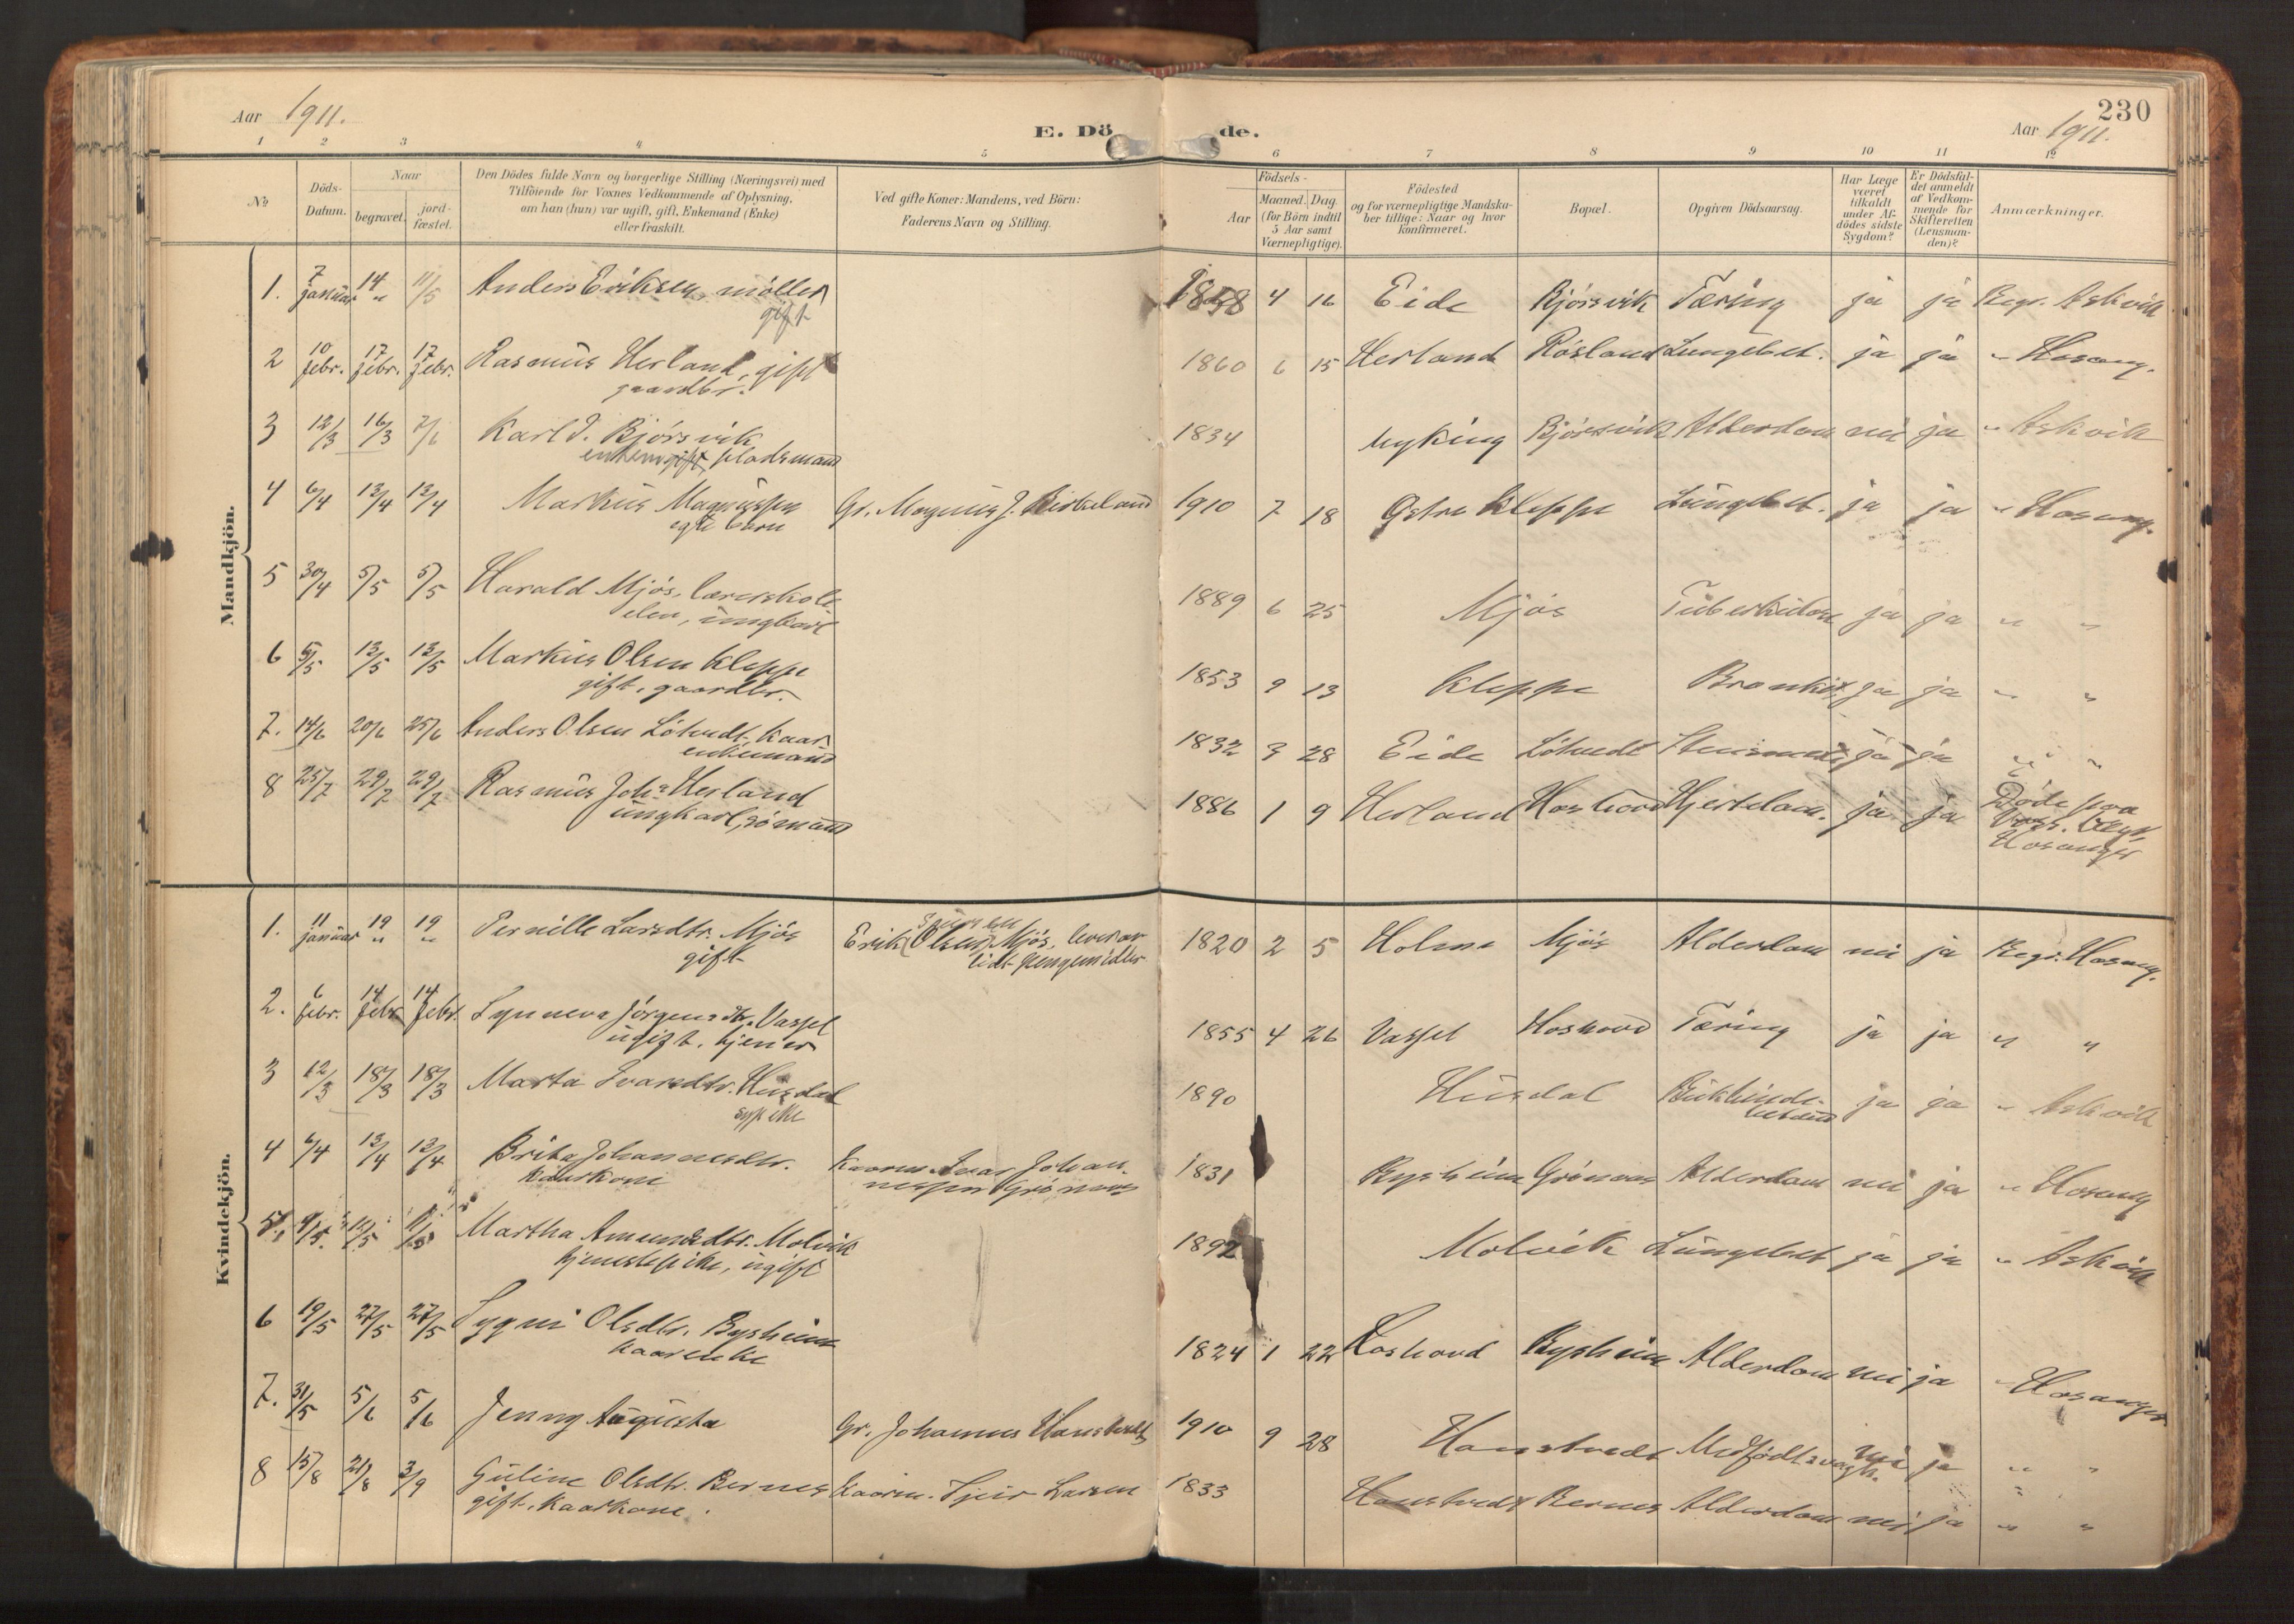 Aar 1911.
E. Dö de.
Aar 1911.
230
1 2 3 4 5 6 7 8 9 10 11 12
№
Döds-Datum.
Naar
begravet.
jord-fæstet.
Den Dödes fulde Navn og borgerlige Stilling (Næringsvei) med
Tilföiende for Voxnes Vedkommende af Oplysning,
om han (hun) var ugift, gift, Enkemand (Enke)
eller fraskilt.
Ved gifte Koner: Mandens, ved Börn:
Faderens Navn og Stilling.
Födsels-
Aar
Maaned. Dag.
(for Börn indtil
5 Aar samt
Værnepligtige).
Födested
og for værnepligtige Mandska-
ber tillige: Naar og hvor
konfirmeret.
Bopæl.
Opgiven Dödsaarsag.
Har Læge
været
tilkaldt
under Af-
dödes sidste
Sygdom?
Er Dödsfal-
det anmeldt
af Vedkom-
mende for
Skifteretten
(Lensman-
den)?
Anmærkninger.
Mandkjön.
1. 7 januar 14 " 11/5 Anders Eriksen, møller 1858 4 16 Eide Bjórsvik Tæring ja ja Begr. Askvik
gift
2 10 febr. 17 febr. 17 febr. Rasmus Herland, gift 1860 6 15 Herland Røsland Lungebet. ja ja " Hosang.
gaardbr.
3 12/3 16/3 7/6 Karl J. Bjórsvik 1834 Myking Bjórsvik Alderdom nei ja " Askvik
pladsmand
4 6/4 12/4 12/4 Markus Magnussen Gr. Magnus J. Birkeland 1910 7 18 Østre Kleppe Lungebet. ja ja " Hosang.
egte barn
5 30/4 5/5 5/5 Harald Mjós, lærerskole 1889 6 25 Mjós Tuberkulose ja ja " "
elev, ungkarl
6 5/5 12/5 12/5 Markus Olsen Kleppe 1853 9 13 Kleppe Bronkit. ja ja " "
gift, gaardbr.
7. 14/6 20/6 25/6 Anders Olsen Lótvedt, kaar 1832 3 28 Eide Lótvedt ja ja " "
enkemand
8 25/7 29/7 29/7 Rasmus Joh^s Herland 1886 1 9 Herland Hoshovd Hjertelam. ja ja Døde paa
ungkarl, sómand Voss. Begr.
Hosanger
Kvindekjön.
1. 11 januar 19 " 19 " Pernille Larsdtr. Mjós Erik Olsen Mjós, lever av 1820 2 5 Holme Mjós Alderdom nei ja Begr. Hosang.
gift lidt pengemidler
2. 6 febr. 14 febr. 14 febr. Synneva Jørgensdtr. Vassel 1855 4 26 Vassel Hoshovd Tæring ja ja " "
ugift, tjener
3 12/3 18/3 18/3 Marta Ivarsdtr. Husdal 1890 Husdal Bukhinde- ja ja " Askvik
sypike
4 6/4 12/4 12/4 Brita Johannesdtr. Kaarm. Johan- 1831 Bysheim Grónaas Alderdom nei ja " Hosang
Kaarkone nessen Grónaas
5. Martha Amundsdtr. Molvik 1892 Molvik Lungebet ja ja " Askvik
tjenestepike, ugift
6 19/5 27/5 27/5 Sygni Olsdtr. Bysheim 1824 1 22 Hoshovd Bysheim Alderdom nei ja " Hosanger
Kaarenke
7. 31/5 5/6 5/6 Jenny Augusta Gr. Johannes Hanstvedt 1910 9 28 Hanstvedt Medfódt svagh. nei ja " "
8 15/8 21/8 3/9 Guline Olsdtr. Bernes Kaarm. Larsen 1833 Hanstvedt Bernes Alderdom nei ja " "
gift, Kaarkone.